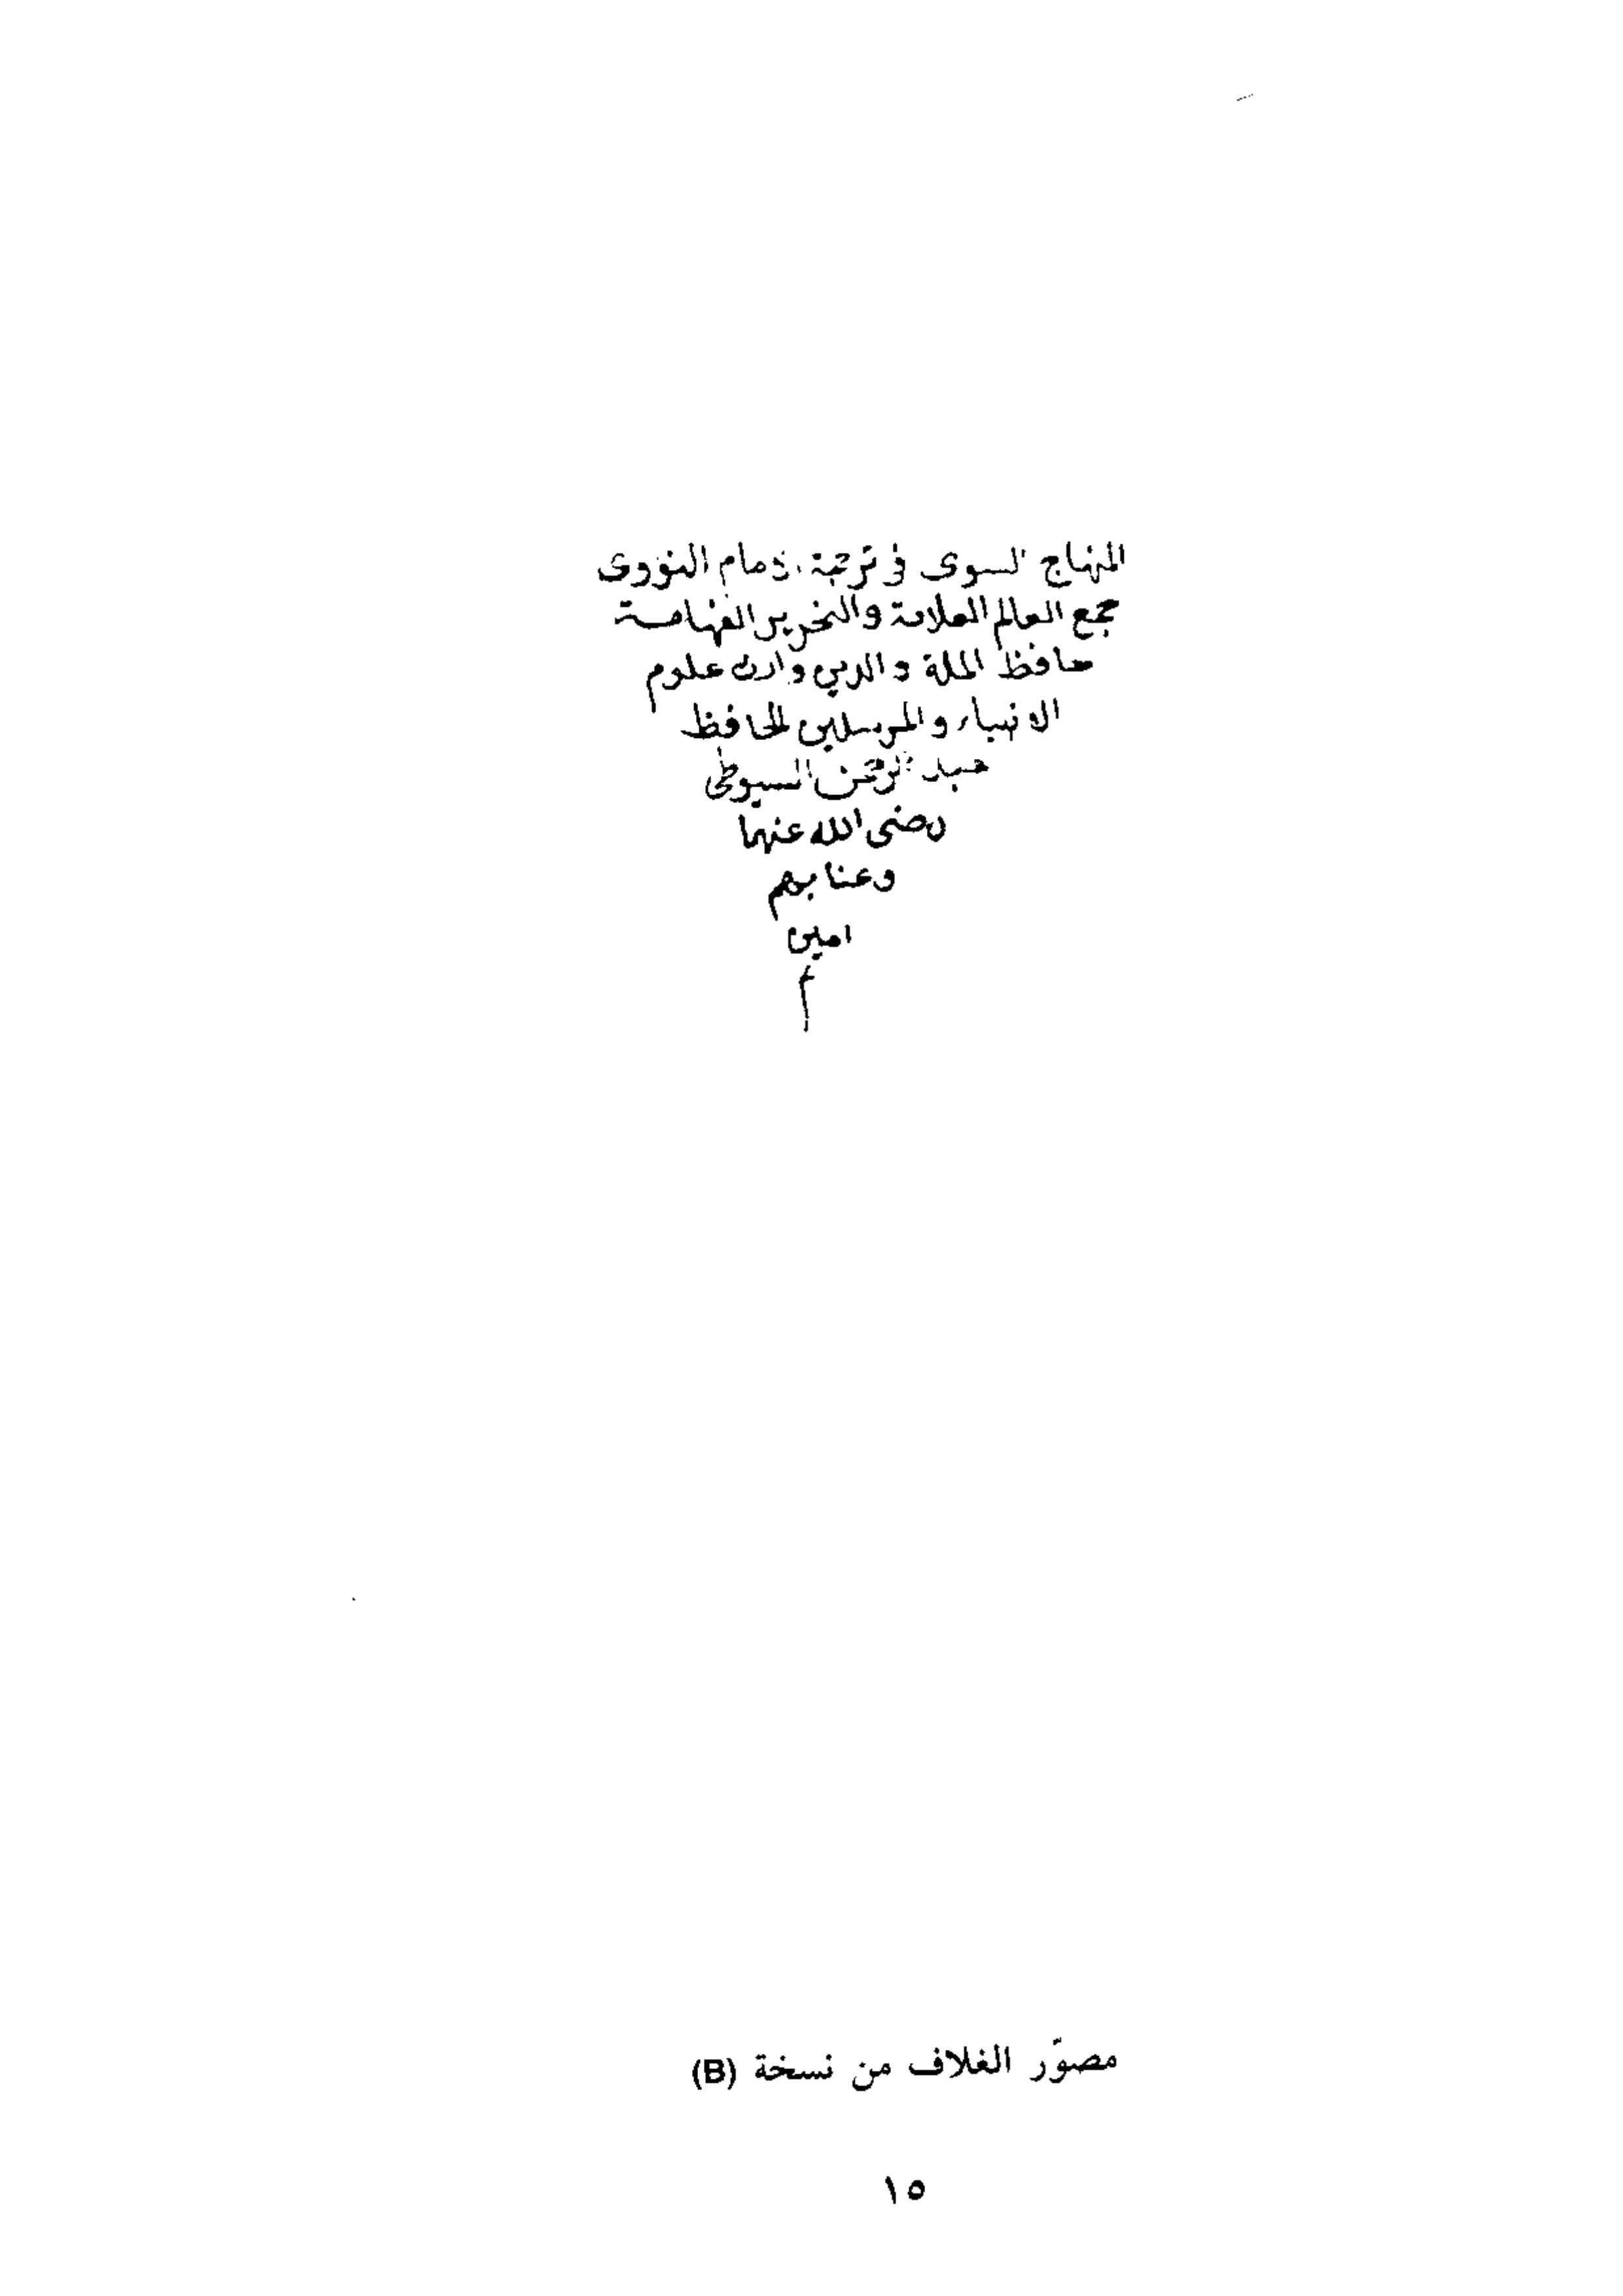 المنهاج السوى فى ترجمة الامام النووى
جمع العالم العلامة والنحرير الفهامة
حافظ الملة والدين وارث علوم
الانبياء والمرسلين الحافظ
عبد الرحمن السيوطى
رضى الله عنهما
وعنا بهم
امين
م
مصوّر الغلاف من نسخة (B)
١٥